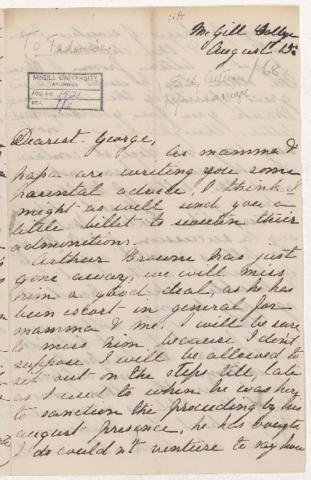 To Tadousac
McGill College
August 15
McGILL UNIVERSITY
ARCHIVES
ACC. NO. 1421
REF.
Dearest George,
as mamma &
papa are writing you some
parental advice, I think I
might as well send you a
little billet to sweeten their
admonitions.
Arthur Browne has just
gone away, we will miss
him a good deal, as he has
been escort in general for
mamma & me. I will be sure
to miss him because I don't
suppose I will be allowed to
sit out on the steps till late
as I used to when he was here
to sanction the proceeding by his
august presence, he has bought
I do couldn't venture to say how